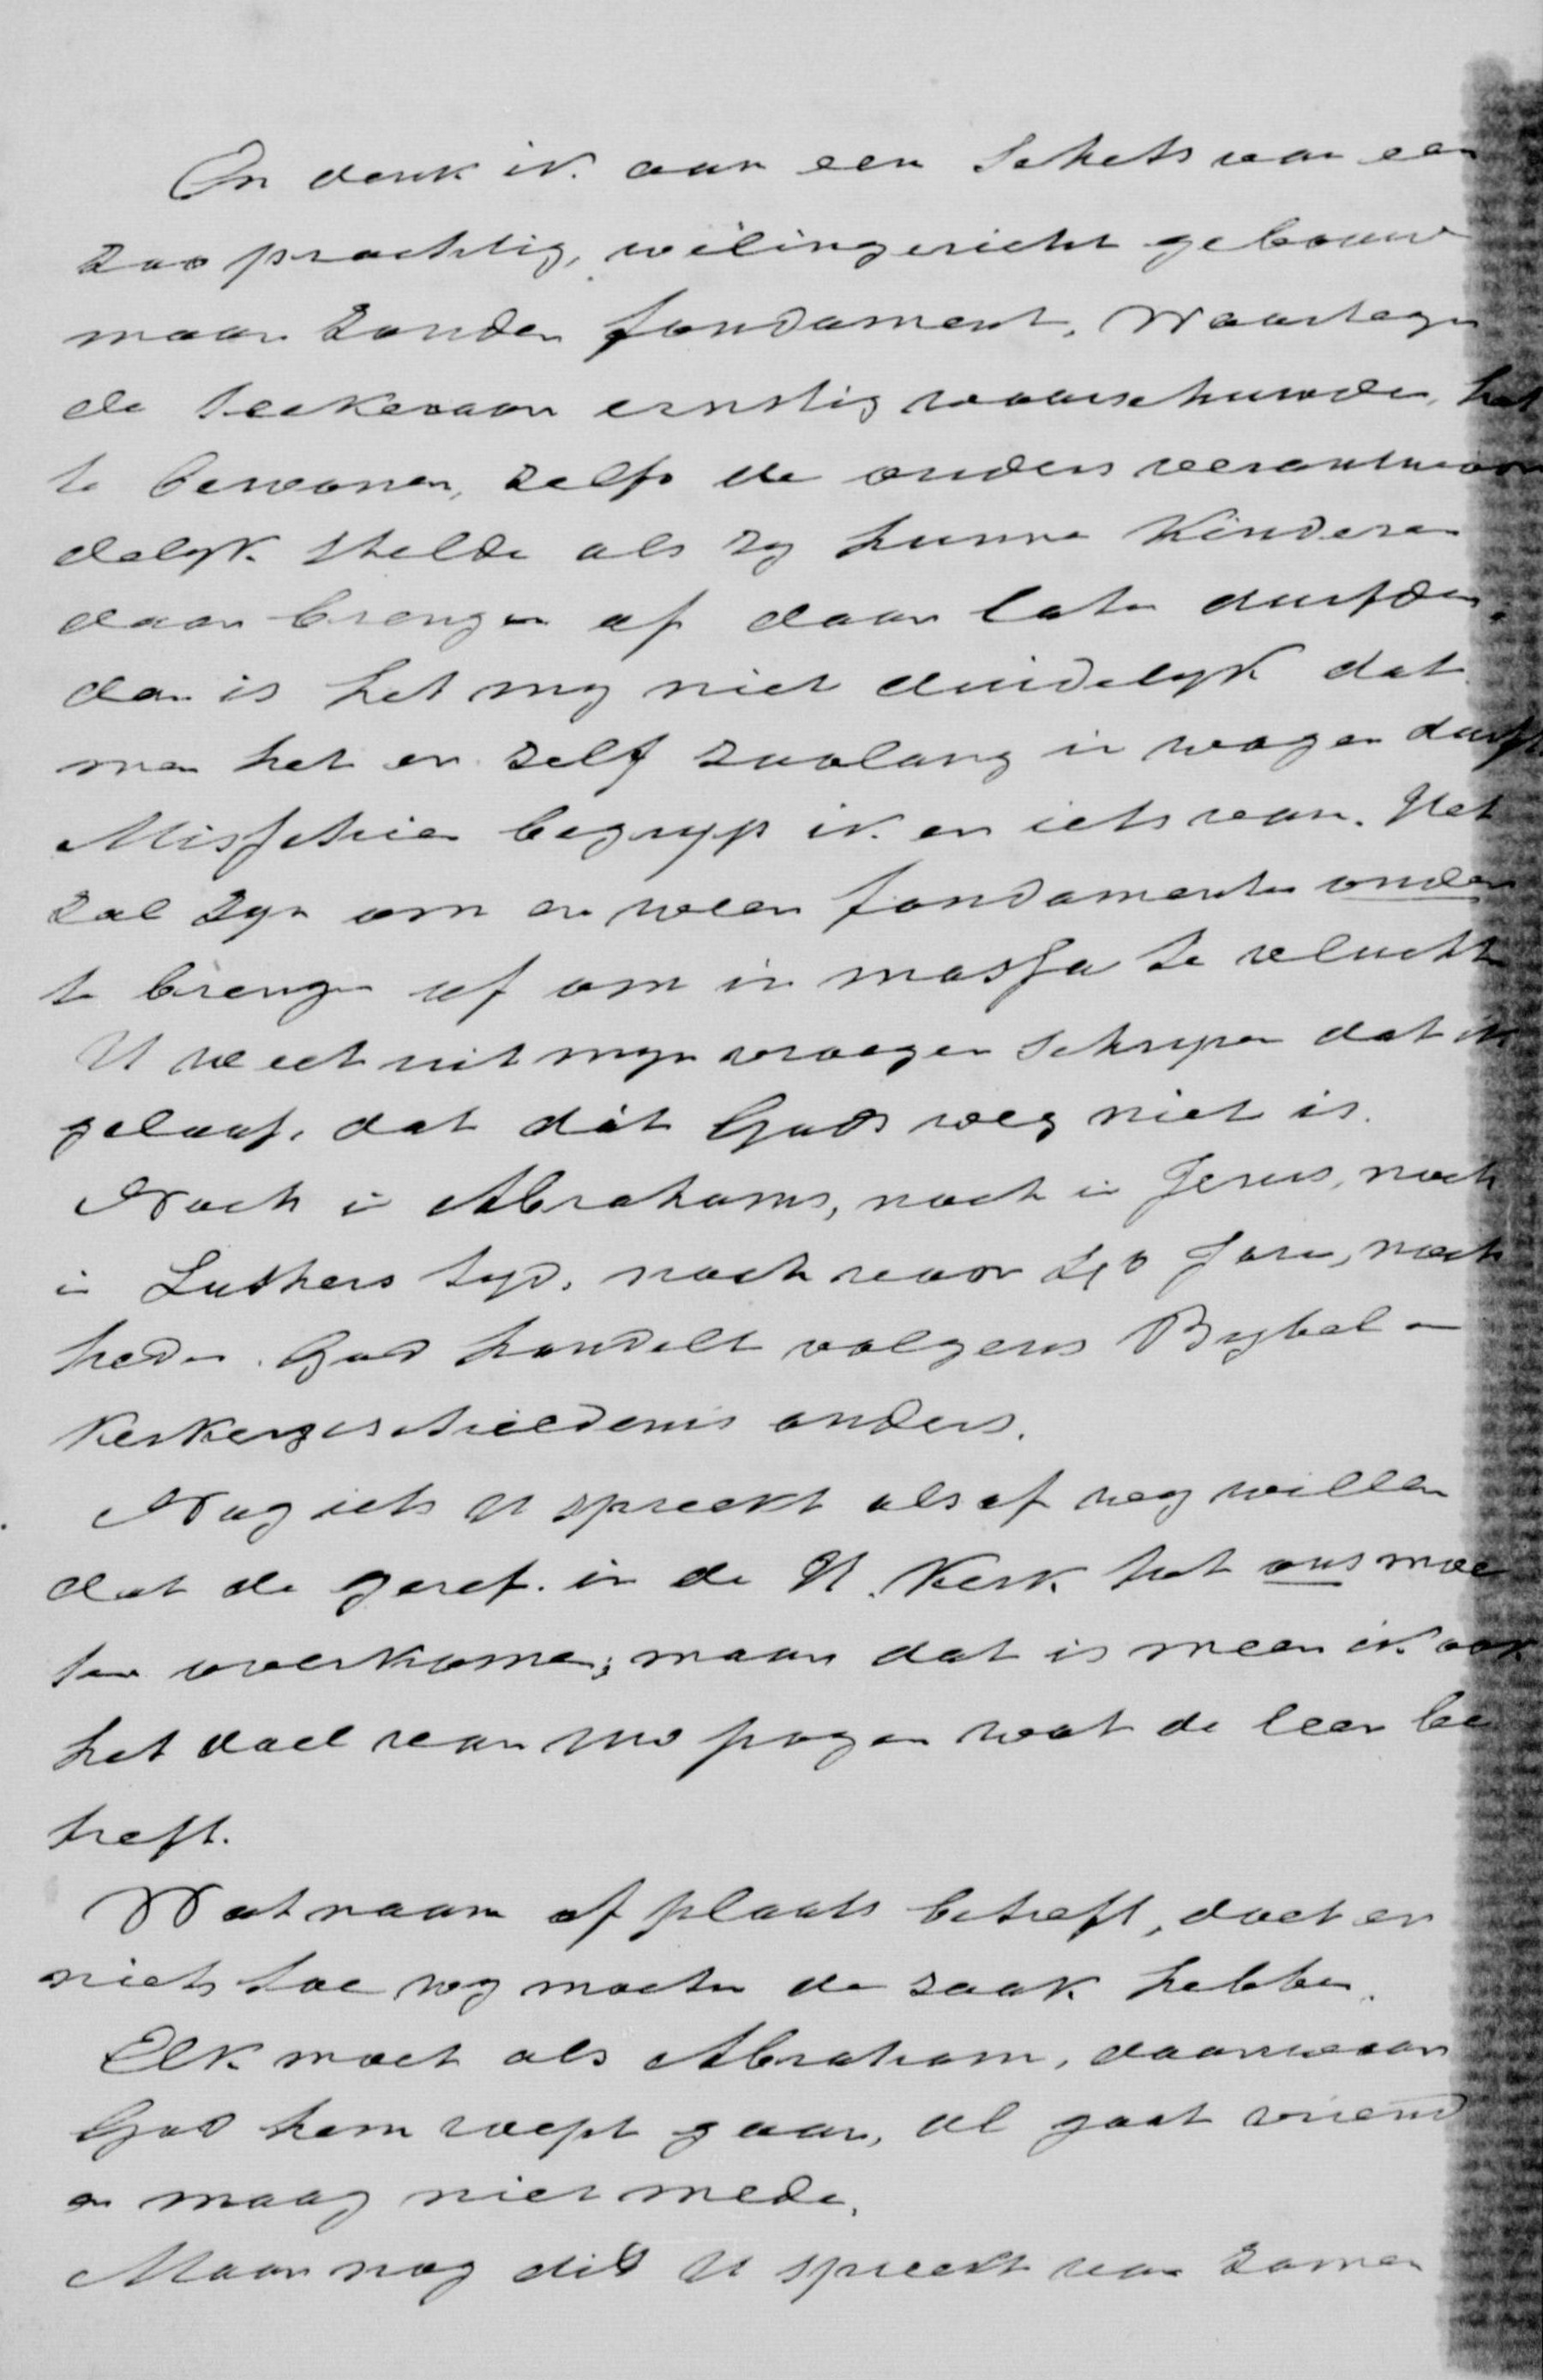 En denk ik aan een Schets van een
zoo prachtig, welingericht gebouw
maar zonder fondament, Waartegen
de Teekenaar ernstig waarschuwde, het
te bewonen, zelfs de ouders verantwoor
delyk stelde als zy hunne Kinderen
daar brengen of daar laten durfden,
dan is het my niet duidelyk dat
men het er zelf zoolang in wagen durft
Misschien begryp ik er iets van. Het
zal zyn om er weer fondamenten onder
te brengen of om in massa te vluchten
U weet uit myn vroeger schryven dat ik
geloof, dat dát Gods weg niet is.
Noch in Abrahams, noch in Jesus, noch
in Luthers tyd, noch voor 40 Jaren, noch
heden. God handelt volgens Bybel en
Kerkengeschiedenis anders.
Nog iets U spreekt alsof wy willen
dat de geref. in de H. Kerk tot ons moe
ten overkomen; maar dat is meen ik ook
het doel van uw pogen wat de leer be
treft.
Wat naam of plaats betreft, doet er
niets toe wy moeten de zaak hebben.
Elk moet als Abraham, daarwaar
God hem roept gaan, al gaat vriend
en maag niet mede.
Maar nog dit U spreekt van zamen